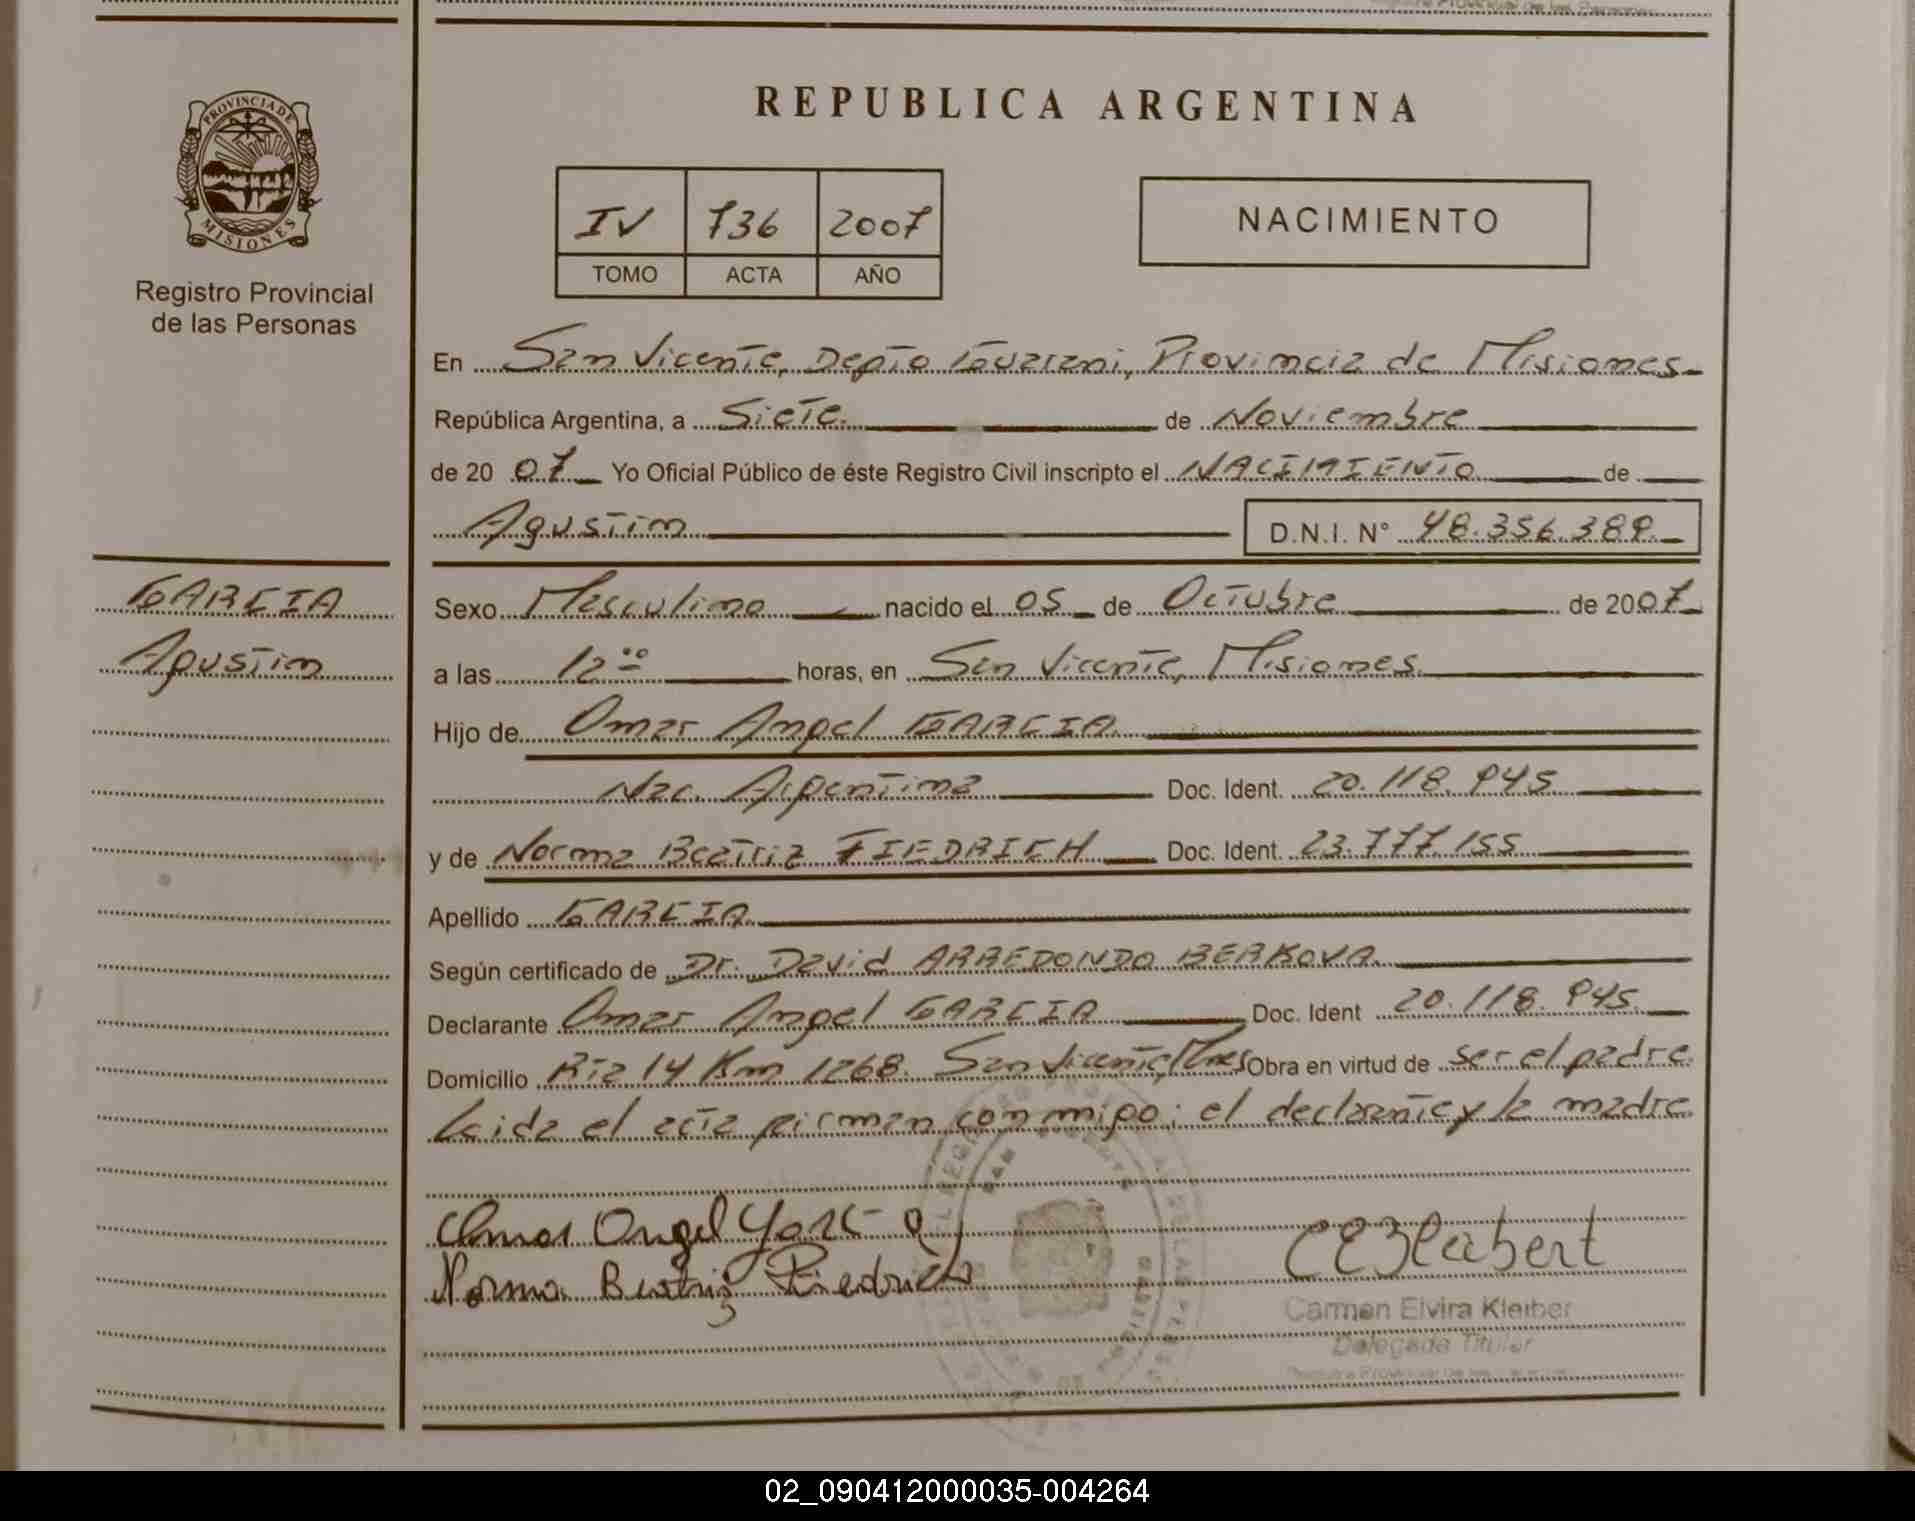 REPUBLICA ARGENTINA
PROVINCIA DE
MISIONES
Registro Provincial
de las Personas
IV 736 2007
TOMO ACTA AÑO
NACIMIENTO
En San Vicente, Depto Guarani, Provincia de Misiones
República Argentina, a Siete. de Noviembre
de 2007 Yo Oficial Público de éste Registro Civil inscripto el NACIMIENTO de
Agustin D.N.I. N° 48.356.389.
GARCIA
Agustin
Sexo Masculino nacido el 05 de Octubre de 2007
a las 12 00 horas, en San Vicente, Misiones.
Hijo de Omar Angel GARCIA.
Nac. Argentina Doc. Ident. 20.118.945
y de Norma Beatriz FIEDRICH Doc. Ident. 23.777.155
Apellido GARCIA.
Según certificado de Dr. David ARREDONDO BERKOVA.
Declarante Omar Angel GARCIA Doc. Ident 20.118.945.
Domicilio Rta 14 Km 1268. San Vicente, Mnes Obra en virtud de ser el padre.
Leida el acta firman conmigo: el declarante y la madre.
Omar Angel
Norma Beatriz Fiedrich
Carmen Elvira Kleiber
Delegada Titular
02_090412000035-004264